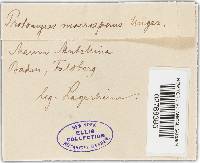 Protomyces macrosporus Unger.
Meum Mutellina
Baden, Feldberg
leg. Lagerheim.
NEW YORK
ELLIS
COLLECTION
BOTANICAL GARDEN